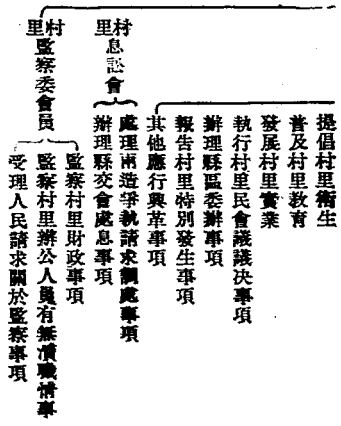 提倡村里衛生
普及村里教育
發展村里實業
執行村里民會議議決事項
辦理縣區委辦事項
報告村里特別發生事項
其他應行興革事項
村里息訟會
處理兩造爭執請求調處事項
辦理縣交會處息事項
村里監察委會員
監察村里財政事項
監察村里辦公人員有無瀆職情事
受理人民請求關於監察事項